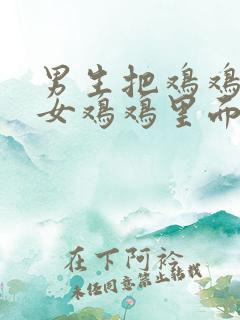 男生把鸡鸡
女鸡鸡里而
在下阿衿
未经同意禁止转载